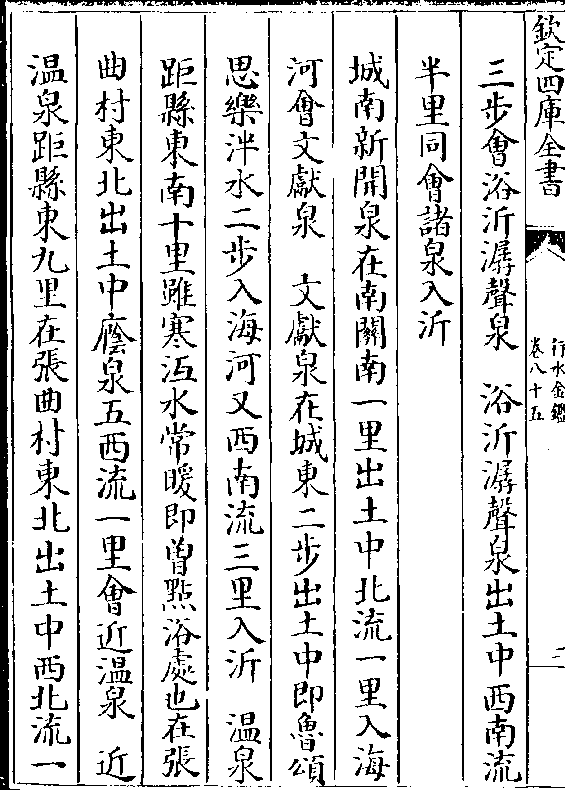 欽定四庫全書
行水金鑑
卷八十五
二
三步會浴沂潺聲泉　浴沂潺聲泉出土中西南流
半里同會諸泉入沂
城南新開泉在南關南一里出土中北流一里入海
河會文獻泉　文獻泉在城東二步出土中即魯頌
思樂泮水二步入海河又西南流三里入沂　温泉
距縣東南十里雖寒沍水常暖即曽㸃浴處也在張
曲村東北出土中廕泉五西流一里會近温泉　近
温泉距縣東九里在張曲村東北出土中西北流一